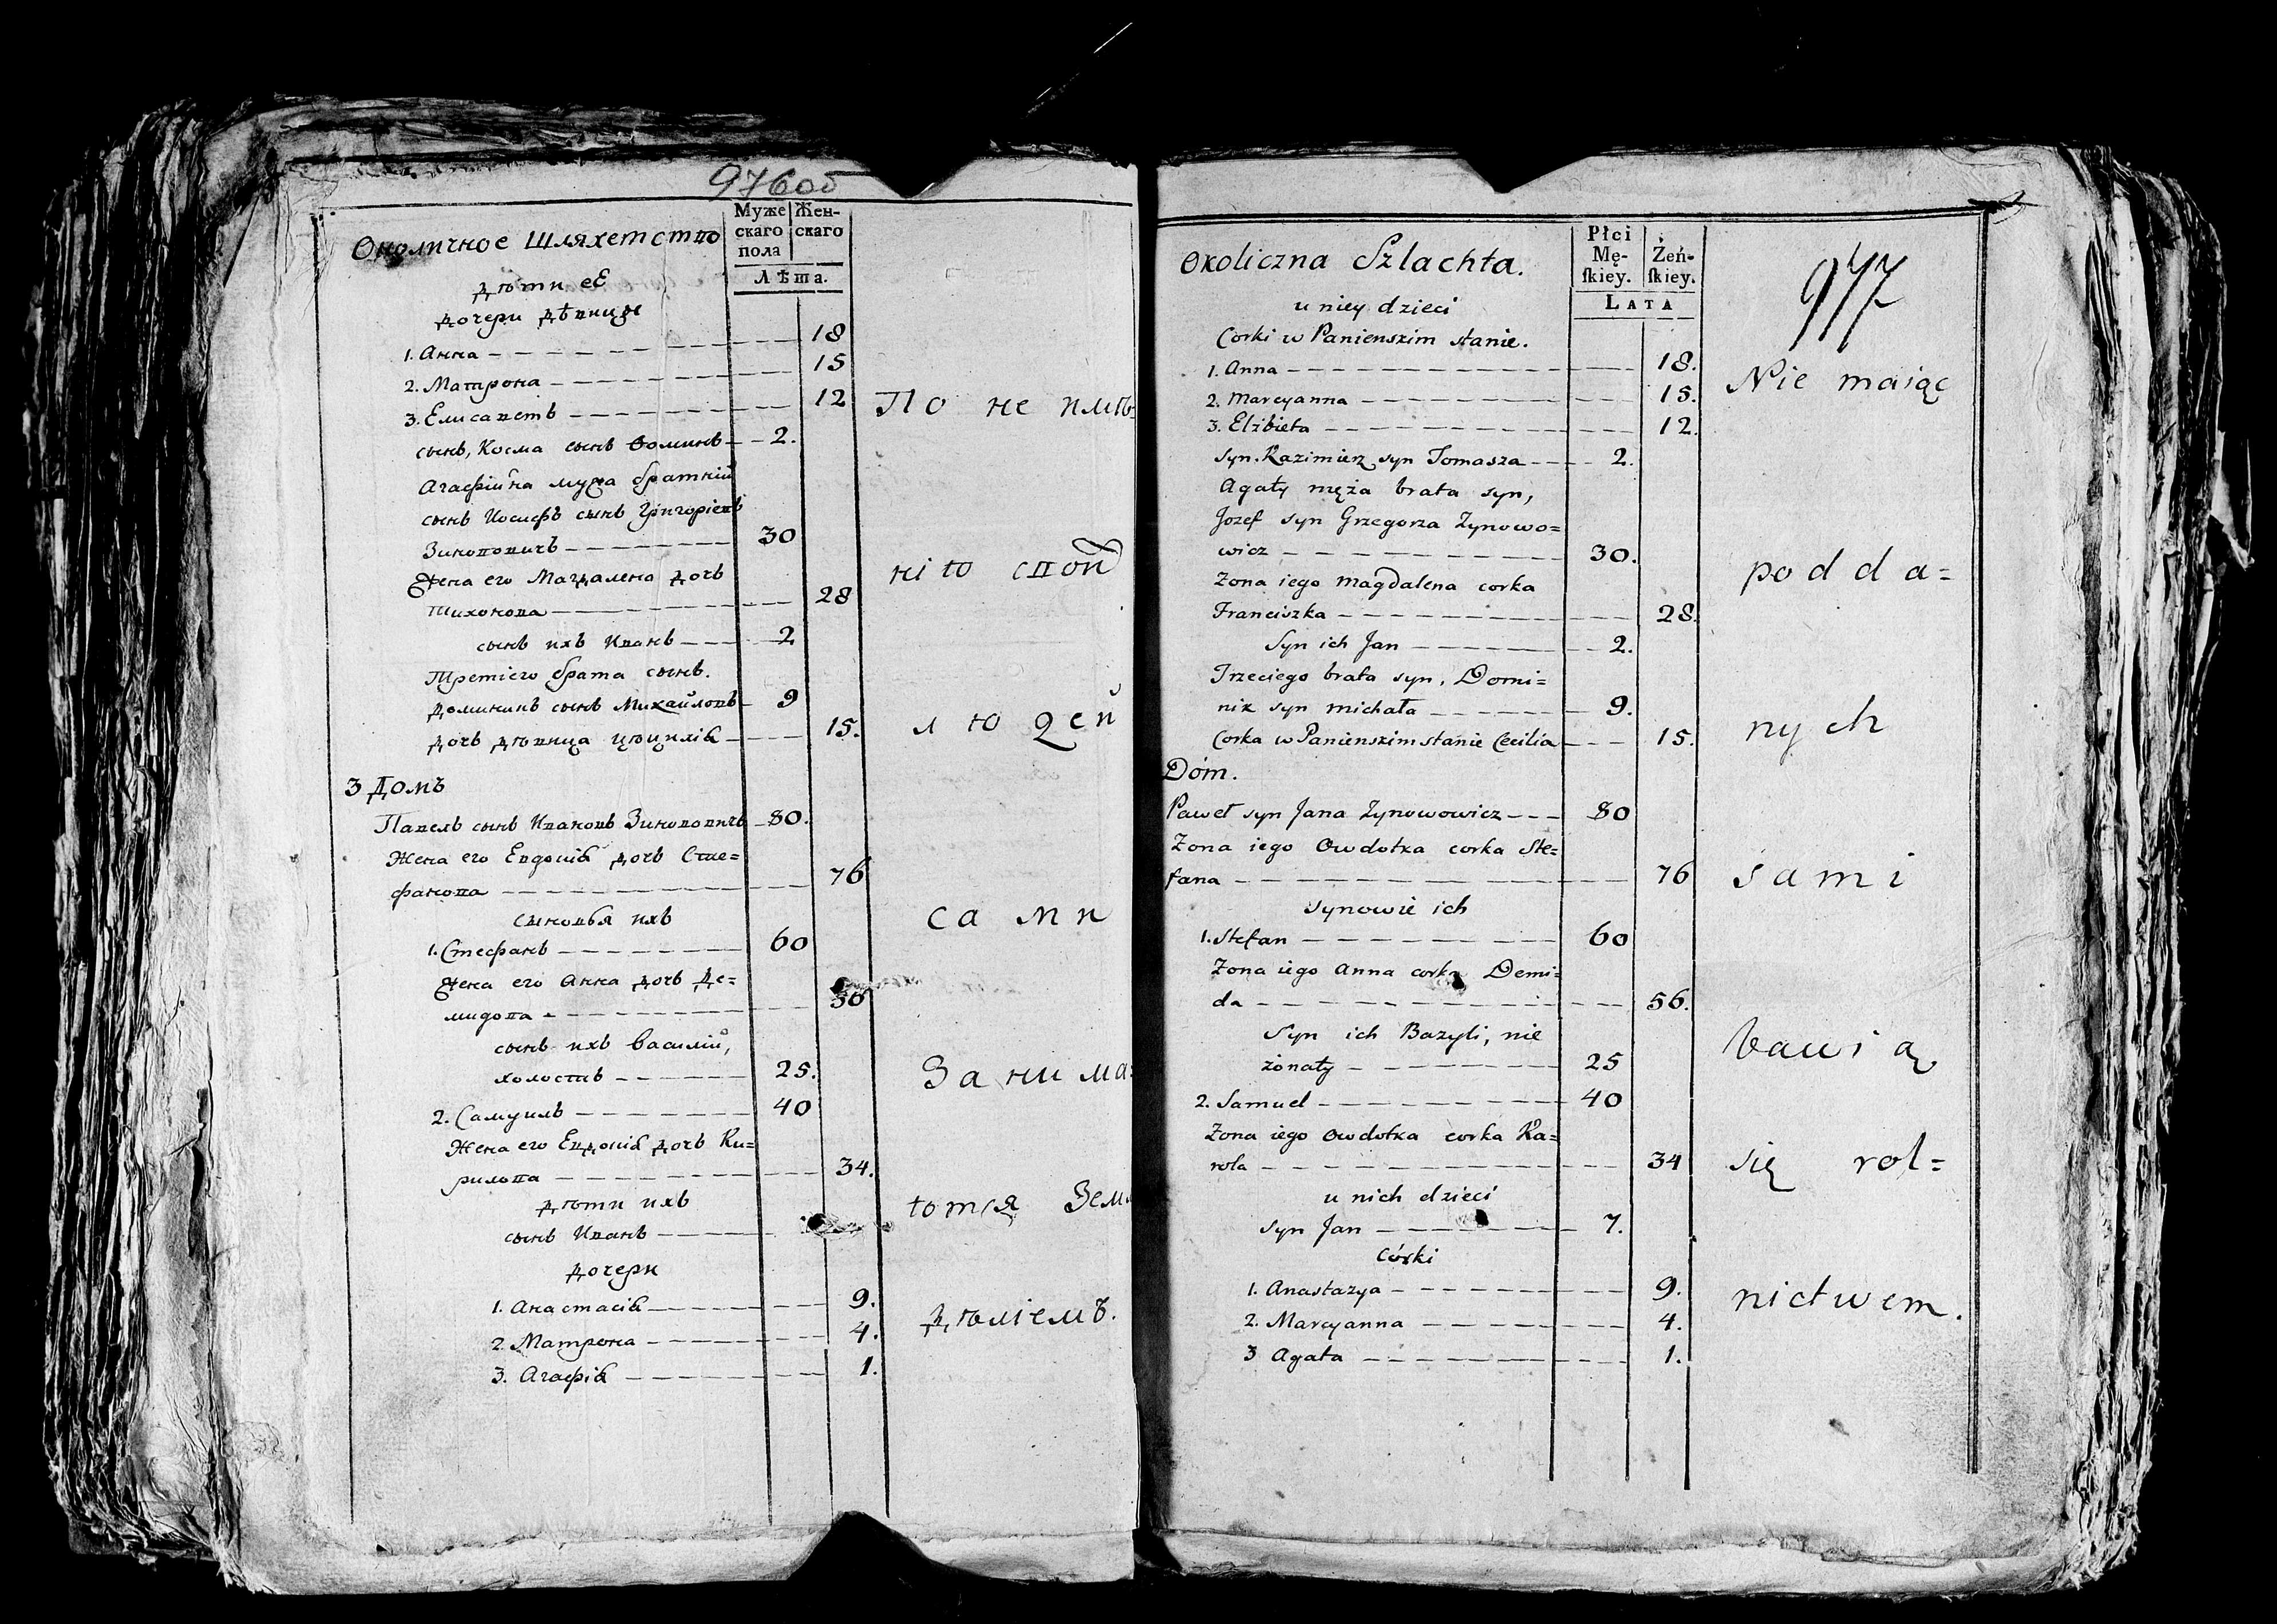 976об
Околичное Шляхетство
Муже Жен-
скаго скаго
пола
Лѣта.
дѣти еѣ
дочери дѣвицы
1. Анна 18
2. Матрона 15
3. Елисаветъ 12
сынъ, Косма сынъ Ѳоминъ 2.
Агафіина мужа братній
сынъ Иосифъ сынъ Григоріевъ
Зинововичъ 30
Жена его Магдалена дочь
Тихонова 28
сынъ ихъ Иванъ 2
Третіего брата сынъ.
Доминикъ сынъ Михайловъ 9
дочь дѣвица Цѣцилія 15.
3 Домъ
Павелъ сынъ Ивановъ Зинововичъ 80.
Жена его Евдокія дочь Сте=
фанова 76
сыновья ихъ
1. Стефанъ 60
Жена его Анна дочь Де=
мидова 56
сынъ ихъ Василій,
холостъ 25.
2. Самуилъ 40
Жена его Евдокія дочь Ки=
рилова 34.
дѣти ихъ
сынъ Иванъ
дочери
1. Анастасія 9.
2. Матрона 4.
3. Агафія 1.
По не имѣ=
нію своп
людей
сами
Занима=
ются Зем
дѣліемъ.
Okoliczna Szlachta.
Płci
Mę- Żeń-
skiey. skiey.
LATA
977
u niey dzieci
Corki w Panienskim stanie.
1. Anna 18.
2. Marcyanna 15.
3. Elżbieta 12.
syn. Kazimierz syn Tomasza 2.
Agaty męża brata syn,
Jozef syn Grzegorza Zynowo=
wicz 30.
Żona iego Magdalena corka
Franciszka 28.
Syn ich Jan 2.
Trzeciego brata syn, Domi=
nik syn Michała 9.
Corka w Panienskim stanie Cecilia 15.
Dóm.
Paweł syn Jana Zynowowicz 80
Żona iego Owdotka corka Ste=
fana 76
synowie ich
1. Stefan 60
Żona iego Anna corka Demi=
da 56.
Syn ich Bazyli, nie
żonaty 25
2. Samuel 40
Żona iego Owdotka corka Ka=
rola 34
u nich dzieci
syn Jan 7.
Córki
1. Anastazya 9.
2. Marcyanna 4.
3 Agata 1.
Nie maiąc
podda=
nych
sami
bawią
się rol=
nictwem.